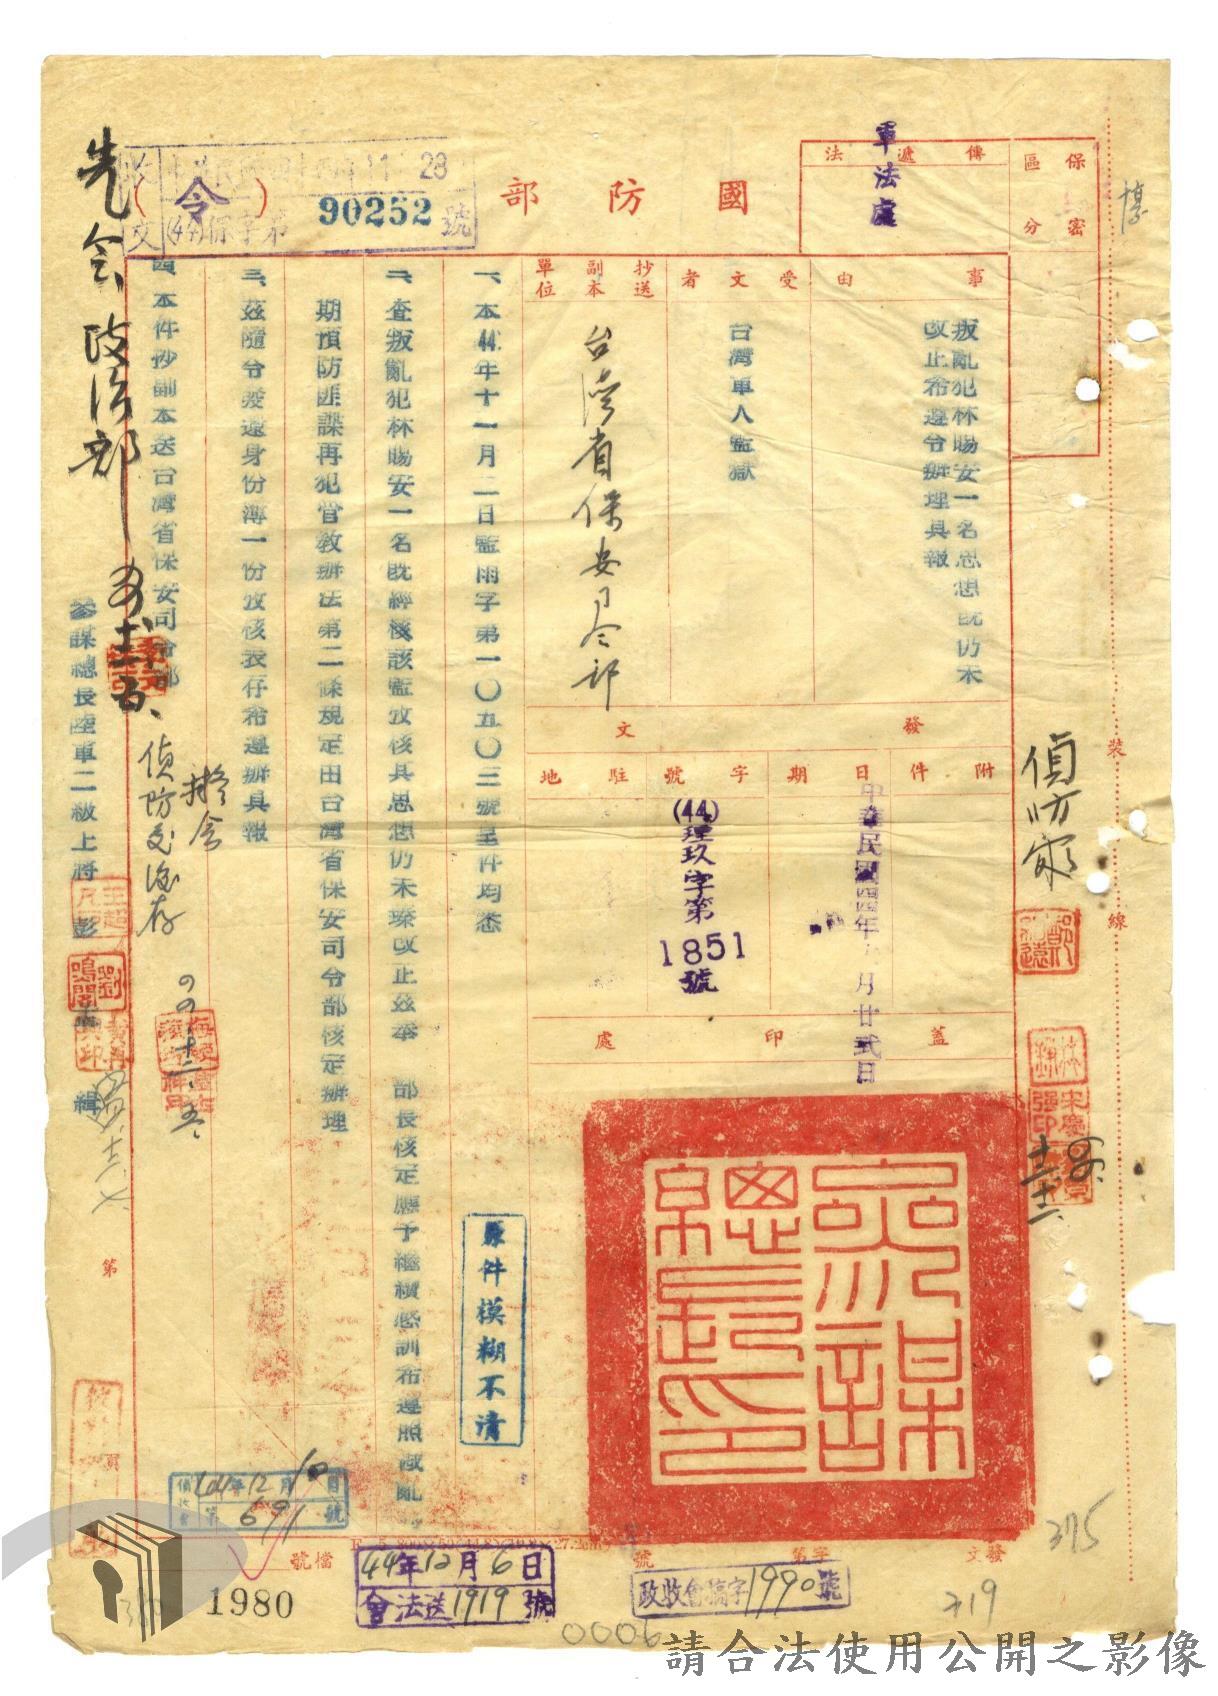 保密區分
傳遞法
軍法處
國防部
(令)
90252號
事由
叛亂犯林賜安一名思想既仍未
改正希遵令辦理具報
受文者
台灣軍人監獄
抄送副本單位
台灣省保安司令部
發文
附件
日期
中華民國四四年十一月廿貳日
字號
(44)理玖字第1851號
駐地
蓋印處
參謀總長之印
一、本44年十一月二日監雨字第一〇五〇三號呈件均悉
二、查叛亂犯林賜安一名既經該監攷核具思想仍未臻改正茲奉 部長核定應予繼續感訓希遵照戡亂時
期預防匪諜再犯管教辦法第二條規定由台灣省保安司令部核定辦理
三、茲隨令發還身份簿一份攷核表存希遵辦具報
四、本件抄副本送台灣省保安司令部
參謀總長陸軍二級上將彭孟緝
先會政治部
擬會
偵防
偵防
原件模糊不清
裝
線
44年12月10日
第691號
44年12月6日
會法送1919號
政收會稿字1990號
檔號
發文 字第 號
1980
0006
375
719
第 頁
請合法使用公開之影像